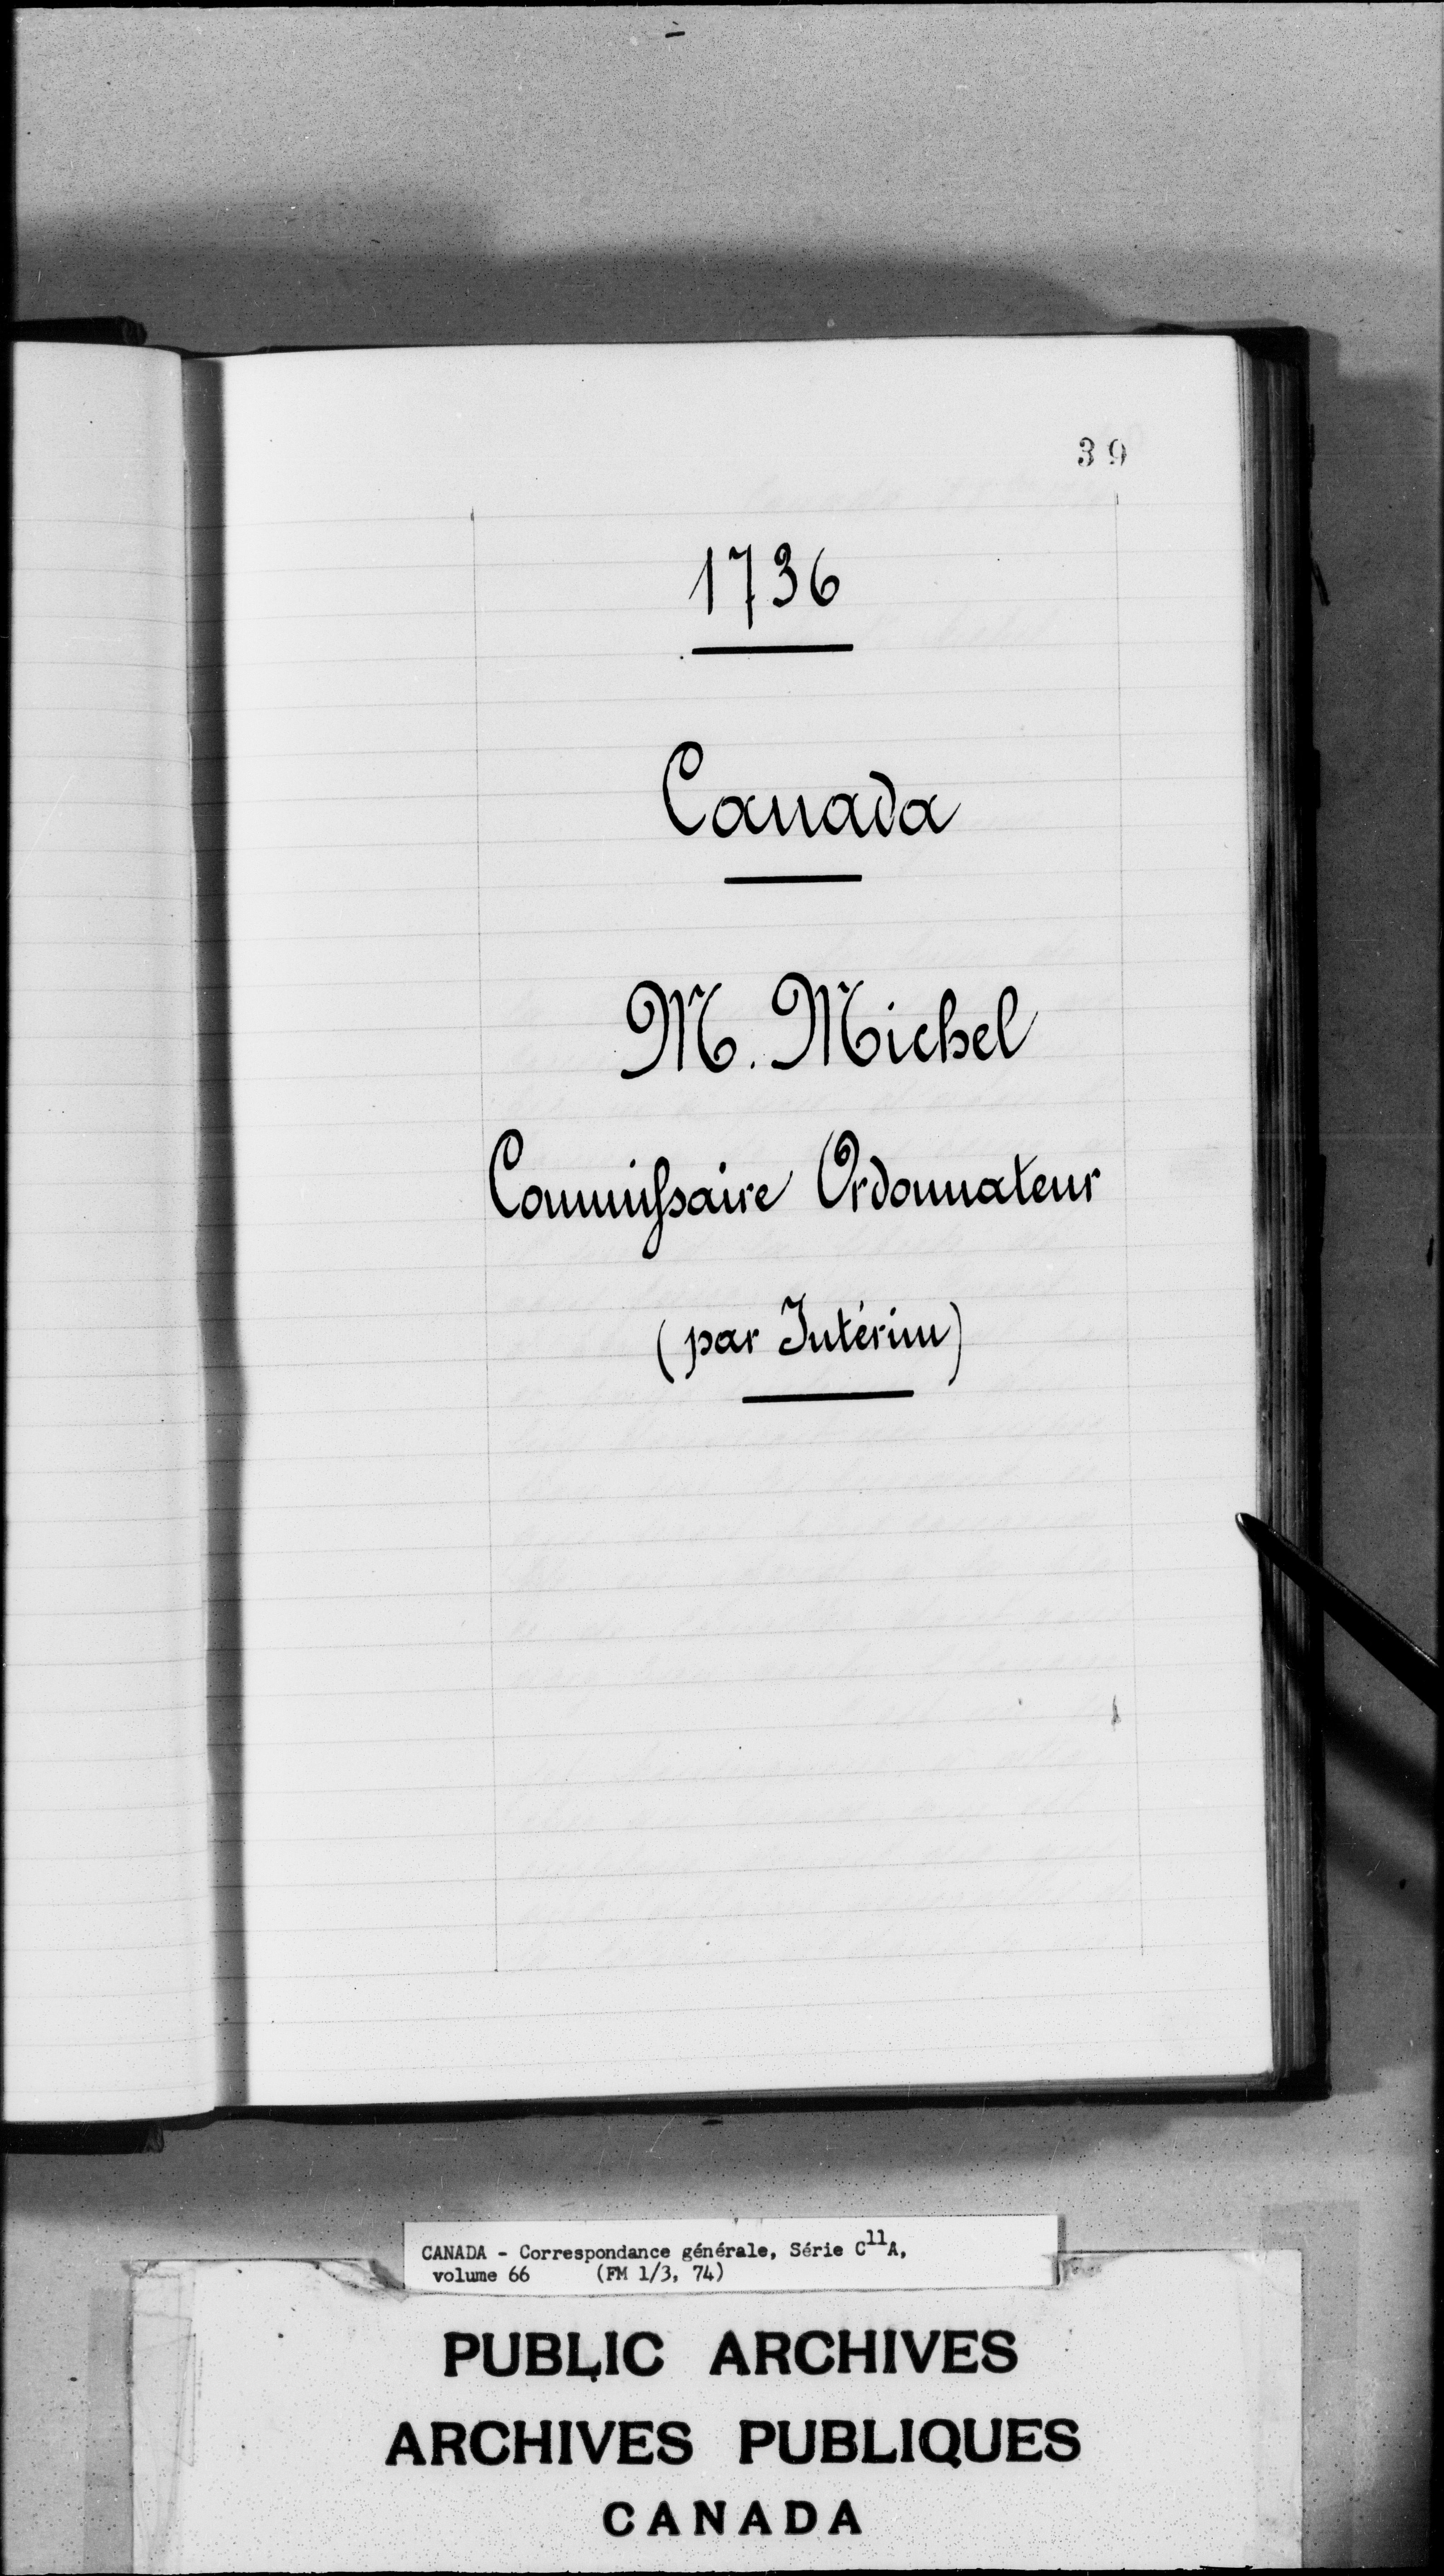 39
1736
Canada
M. Michel
Commissaire Ordonnateur
(par Intérim)
CANADA - Correspondance générale, Série C11A,
volume 66 (FM 1/3, 74)
PUBLIC ARCHIVES
ARCHIVES PUBLIQUES
CANADA